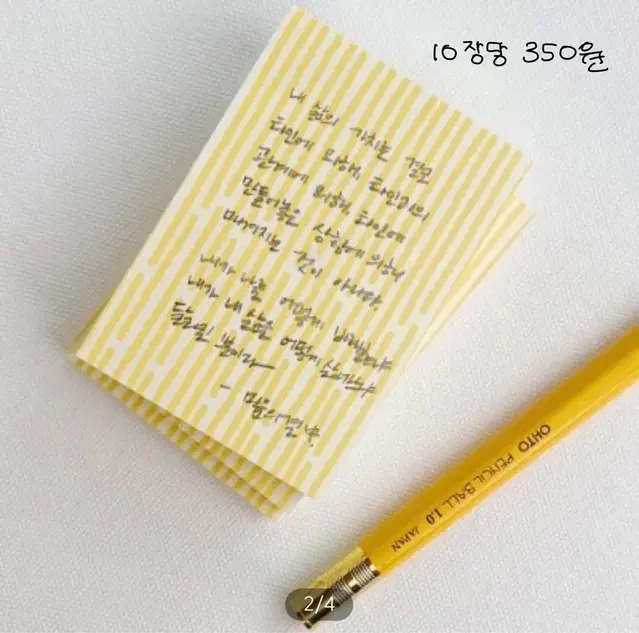 10장당 350원
내 삶의 가치는 결코
타인에 의해, 타인과의
관계에 의해, 타인이
만들어놓은 상황에 의해
매겨지는 것이 아니다.
내가 나를 어떻게
내가 내 삶을 어떻게 살아가느냐
달려있을 뿐이다
-
OHTO PENCIL BALL 1.0 JAPAN
2/4